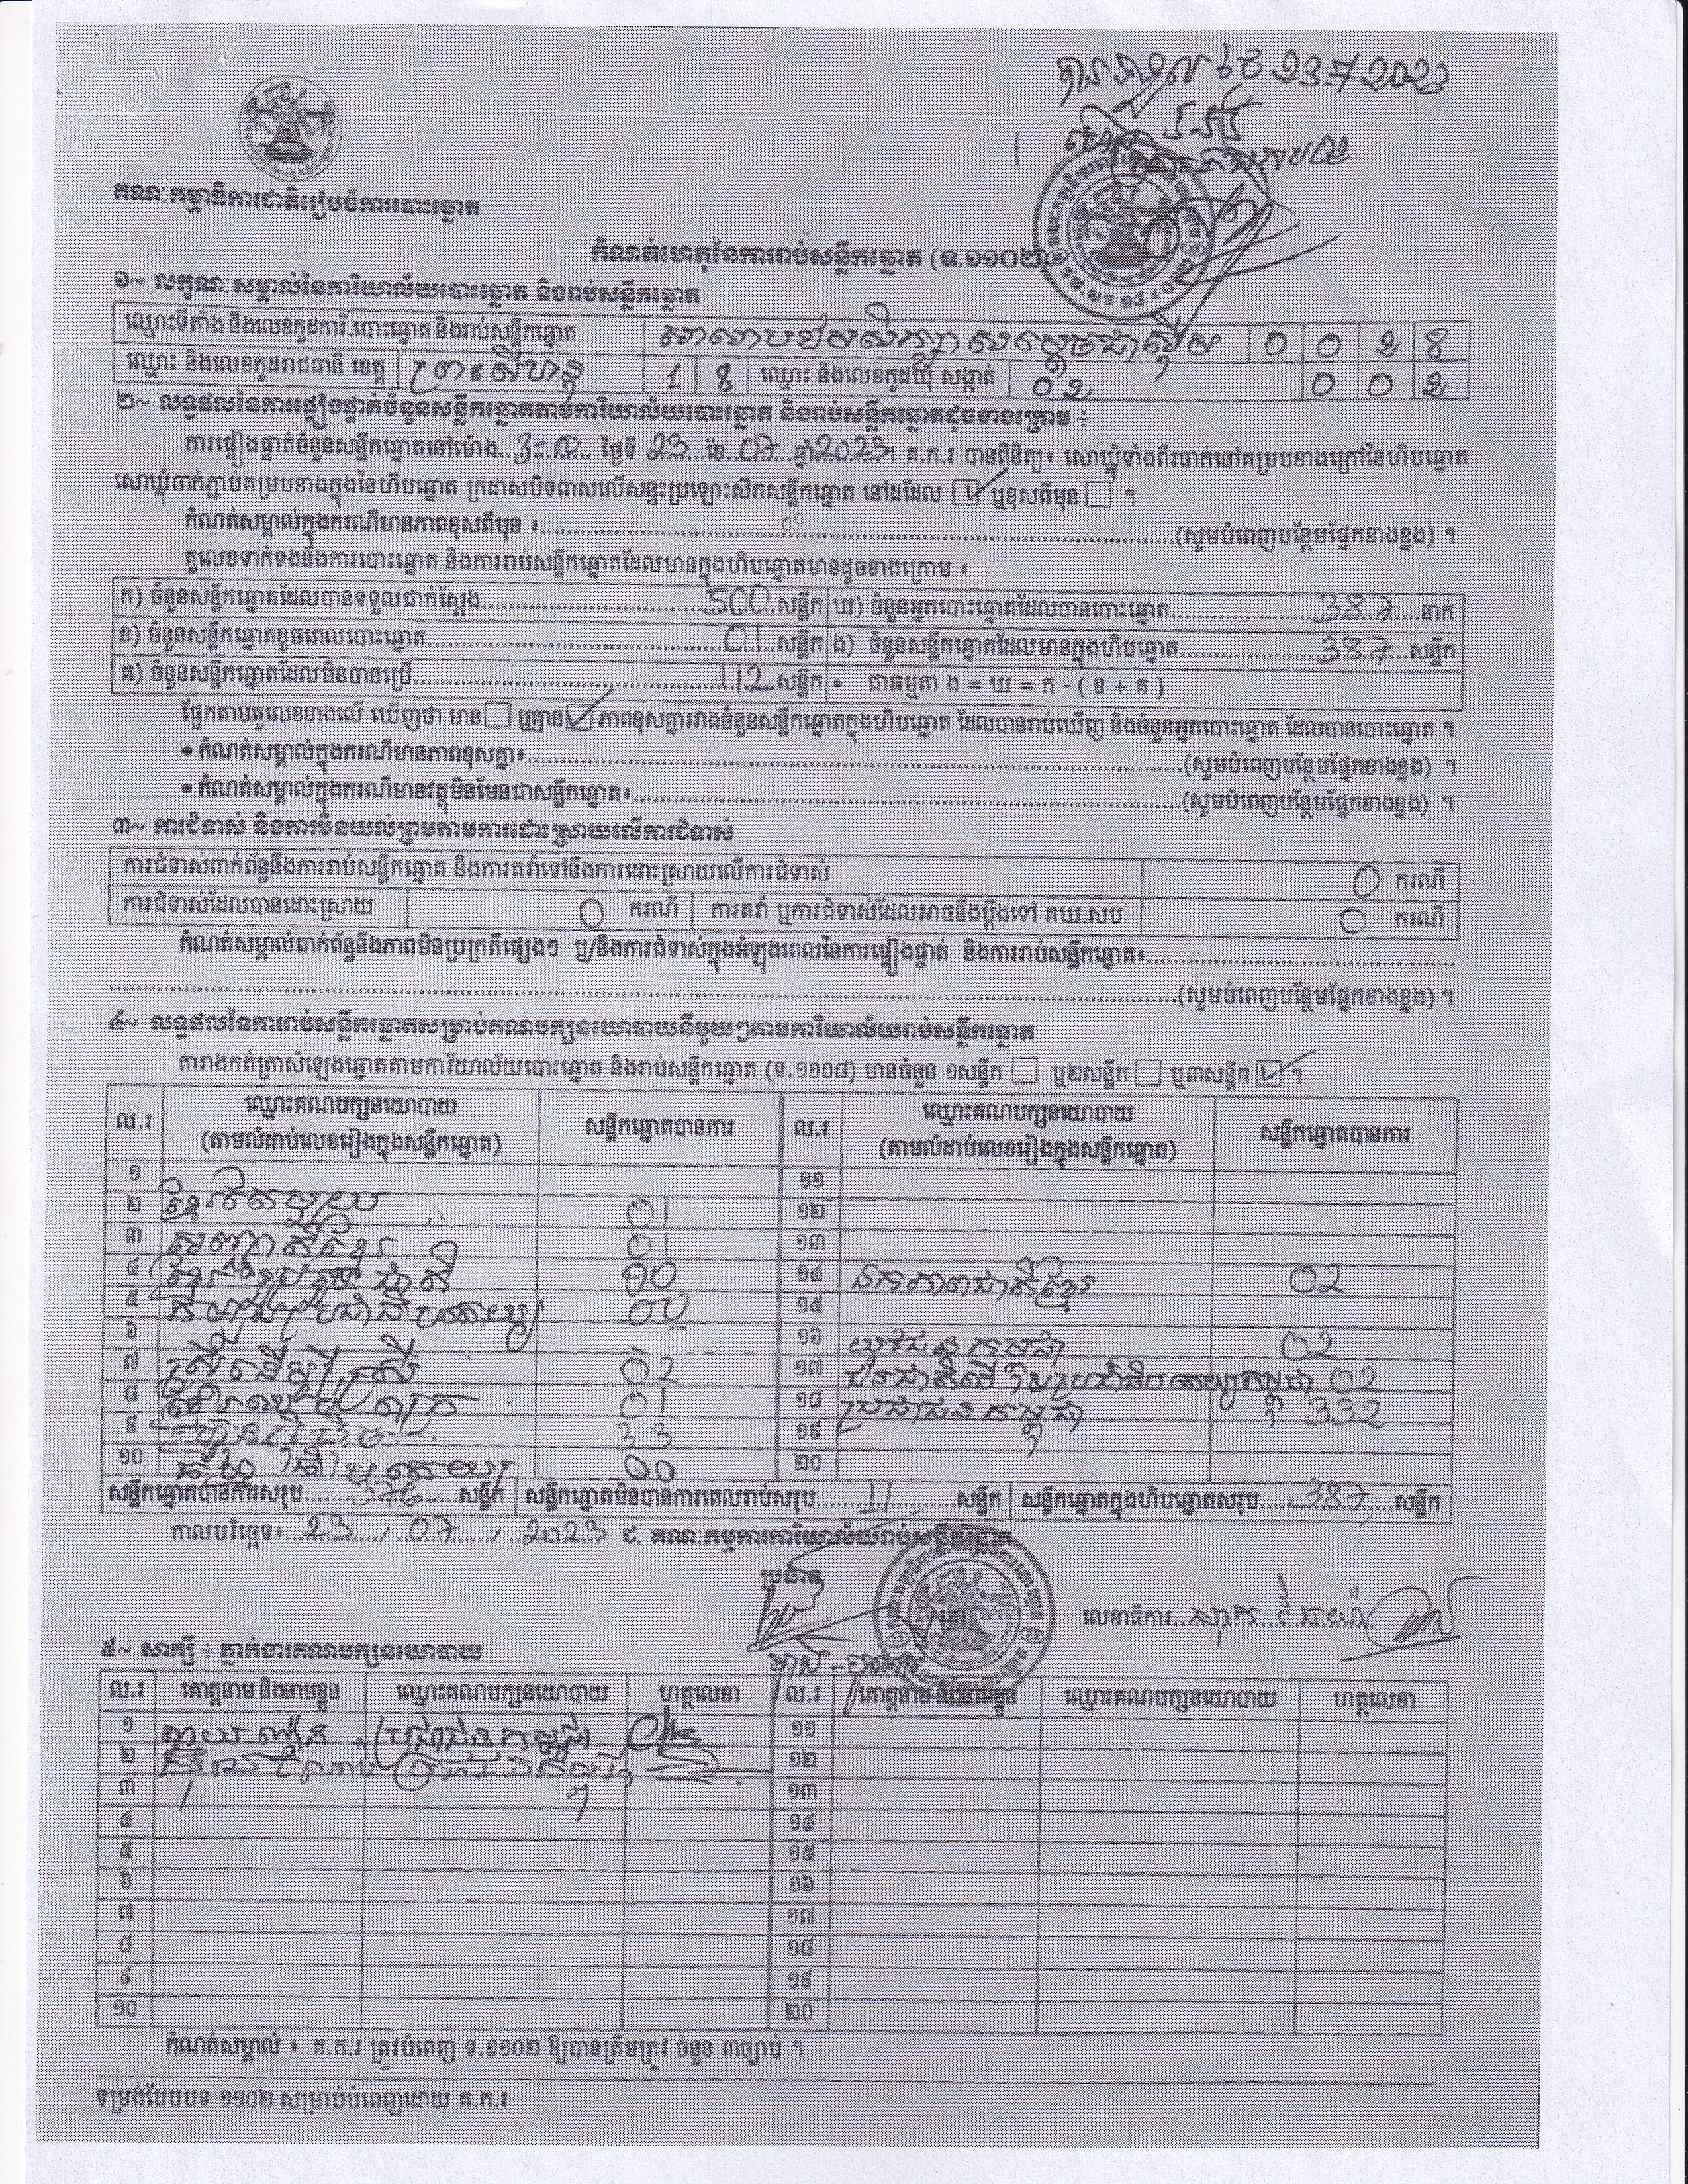 បានទទួល ថៃ 23.7 2023
គណៈកម្មាធិការជាតិរៀបចំការបោះឆ្នោត
កំណត់ហេតុនៃការរាប់សន្លឹកឆ្នោត (ទ.១១០២)
១~ លក្ខណៈសម្គាល់នៃការិយាល័យបោះឆ្នោត និងរាប់សន្លឹកឆ្នោត
ឈ្មោះទីតាំង និងលេខកូដការិ.បោះឆ្នោត និងរាប់សន្លឹកឆ្នោត សាលាបឋមសិក្សា សម្តេចជាស៊ីម 0 0 2 8
ឈ្មោះ និងលេខកូដរាជធានី ខេត្ត ព្រះសីហនុ 1 8 ឈ្មោះ និងលេខកូដឃុំ សង្កាត់ 02 0 0 2
២~ លទ្ធផលនៃការផ្ទៀងផ្ទាត់ចំនួនសន្លឹកឆ្នោតតាមការិយាល័យបោះឆ្នោត និងរាប់សន្លឹកឆ្នោតដូចខាងក្រោម ÷
ការផ្ទៀងផ្ទាត់ចំនួនសន្លឹកឆ្នោតនៅម៉ោង ថ្ងៃទី 23 ខែ 07 ឆ្នាំ 2023។ គ.ក.រ បានពិនិត្យ៖ សោឃ្លុំទាំងពីរចាក់នៅគម្របខាងក្រៅនៃហិបឆ្នោត
សោឃ្លុំចាក់ភ្ជាប់គម្របខាងក្នុងនៃហិបឆ្នោត ក្រដាសបិទពាសលើសន្ទះប្រឡោះស៊កសន្លឹកឆ្នោត នៅដដែល ☑ ឬខុសពីមុន ☐ ។
កំណត់សម្គាល់ក្នុងករណីមានភាពខុសពីមុន ៖ 00 (សូមបំពេញបន្ថែមផ្នែកខាងខ្នង) ។
តួលេខទាក់ទងនឹងការបោះឆ្នោត និងការរាប់សន្លឹកឆ្នោតដែលមានក្នុងហិបឆ្នោតមានដូចខាងក្រោម ៖
ក) ចំនួនសន្លឹកឆ្នោតដែលបានទទួលជាក់ស្តែង 500 សន្លឹក ឃ) ចំនួនអ្នកបោះឆ្នោតដែលបានបោះឆ្នោត 387 នាក់
ខ) ចំនួនសន្លឹកឆ្នោតខូចពេលបោះឆ្នោត 01 សន្លឹក ង) ចំនួនសន្លឹកឆ្នោតដែលមានក្នុងហិបឆ្នោត 387 សន្លឹក
គ) ចំនួនសន្លឹកឆ្នោតដែលមិនបានប្រើ 112 សន្លឹក • ជាធម្មតា ង = ឃ = ក - ( ខ + គ )
ផ្អែកតាមតួលេខខាងលើ ឃើញថា មាន ☐ ឬគ្មាន ☑ ភាពខុសគ្នារវាងចំនួនសន្លឹកឆ្នោតក្នុងហិបឆ្នោត ដែលបានរាប់ឃើញ និងចំនួនអ្នកបោះឆ្នោត ដែលបានបោះឆ្នោត ។
• កំណត់សម្គាល់ក្នុងករណីមានភាពខុសគ្នា៖ (សូមបំពេញបន្ថែមផ្នែកខាងខ្នង) ។
• កំណត់សម្គាល់ក្នុងករណីមានវត្ថុមិនមែនជាសន្លឹកឆ្នោត៖ (សូមបំពេញបន្ថែមផ្នែកខាងខ្នង) ។
៣~ ការជំទាស់ និងការមិនយល់ព្រមតាមការដោះស្រាយលើការជំទាស់
ការជំទាស់ពាក់ព័ន្ធនឹងការរាប់សន្លឹកឆ្នោត និងការតវ៉ាទៅនឹងការដោះស្រាយលើការជំទាស់ 0 ករណី
ការជំទាស់ដែលបានដោះស្រាយ 0 ករណី ការតវ៉ា ឬការជំទាស់ដែលអាចនឹងប្តឹងទៅ គឃ.សប 0 ករណី
កំណត់សម្គាល់ពាក់ព័ន្ធនឹងភាពមិនប្រក្រតីផ្សេងៗ ឬ/និងការជំទាស់ក្នុងអំឡុងពេលនៃការផ្ទៀងផ្ទាត់ និងការរាប់សន្លឹកឆ្នោត៖
(សូមបំពេញបន្ថែមផ្នែកខាងខ្នង) ។
៤~ លទ្ធផលនៃការរាប់សន្លឹកឆ្នោតសម្រាប់គណបក្សនយោបាយនីមួយៗតាមការិយាល័យរាប់សន្លឹកឆ្នោត
តារាងកត់ត្រាសំឡេងឆ្នោតតាមការិយាល័យបោះឆ្នោត និងរាប់សន្លឹកឆ្នោត (ទ.១១០៨) មានចំនួន ១សន្លឹក ☐ ឬ២សន្លឹក ☐ ឬ៣សន្លឹក ☑ ។
ល.រ ឈ្មោះគណបក្សនយោបាយ (តាមលំដាប់លេខរៀងក្នុងសន្លឹកឆ្នោត) សន្លឹកឆ្នោតបានការ ល.រ ឈ្មោះគណបក្សនយោបាយ (តាមលំដាប់លេខរៀងក្នុងសន្លឹកឆ្នោត) សន្លឹកឆ្នោតបានការ
១ ១១
២ ខ្មែរតែមួយ 01 ១២
៣ សញ្ជាតិខ្មែរ 01 ១៣
៤ ខ្មែររួបរួមជាតិ 00 ១៤ ឯកភាពជាតិខ្មែរ 02
៥ សំបុកឃ្មុំសង្គមប្រជាធិបតេយ្យ 00 ១៥
៦ ១៦ យុវជនកម្ពុជា 02
៧ ស្ត្រីដើម្បីស្ត្រី 02 ១៧ ជនជាតិដើមប្រជាធិបតេយ្យកម្ពុជា 02
៨ 01 ១៨ ប្រជាជនកម្ពុជា 332
៩ ហ៊្វុនស៊ិនប៉ិច 33 ១៩
១០ 00 ២០
សន្លឹកឆ្នោតបានការសរុប 376 សន្លឹក សន្លឹកឆ្នោតមិនបានការពេលរាប់សរុប 11 សន្លឹក សន្លឹកឆ្នោតក្នុងហិបឆ្នោតសរុប 387 សន្លឹក
កាលបរិច្ឆេទ៖ 23 / 07 / 2023 ជ. គណៈកម្មការការិយាល័យរាប់សន្លឹកឆ្នោត
ប្រធាន
លេខាធិការ
៥~ សាក្សី ÷ ភ្នាក់ងារគណបក្សនយោបាយ
ល.រ គោត្តនាម និងនាមខ្លួន ឈ្មោះគណបក្សនយោបាយ ហត្ថលេខា ល.រ គោត្តនាម និងនាមខ្លួន ឈ្មោះគណបក្សនយោបាយ ហត្ថលេខា
១ ប្រជាជនកម្ពុជា ១១
២ ១២
៣ ១៣
៤ ១៤
៥ ១៥
៦ ១៦
៧ ១៧
៨ ១៨
៩ ១៩
១០ ២០
កំណត់សម្គាល់ ៖ គ.ក.រ ត្រូវបំពេញ ទ.១១០២ ឱ្យបានត្រឹមត្រូវ ចំនួន ៣ច្បាប់ ។
ទម្រង់បែបបទ ១១០២ សម្រាប់បំពេញដោយ គ.ក.រ